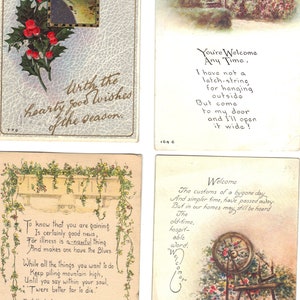 With the
hearty good Wishes
of the season.
You're Welcome
Any Time,
I have not a
latch-string
for hanging
outside
But come
to my door
and I'll open
it wide!
To know that you are gaining
Is certainly good news,
For illness is a painful thing
And makes one have the Blues.
While all the things you want to do
Keep piling mountain high
Until you say within your soul,
"I were better for to die."
Welcome
The customs of a bygone day,
And simpler time, have passed away,
But in our homes may still be heard
The
old-time,
hospit-
able
word,